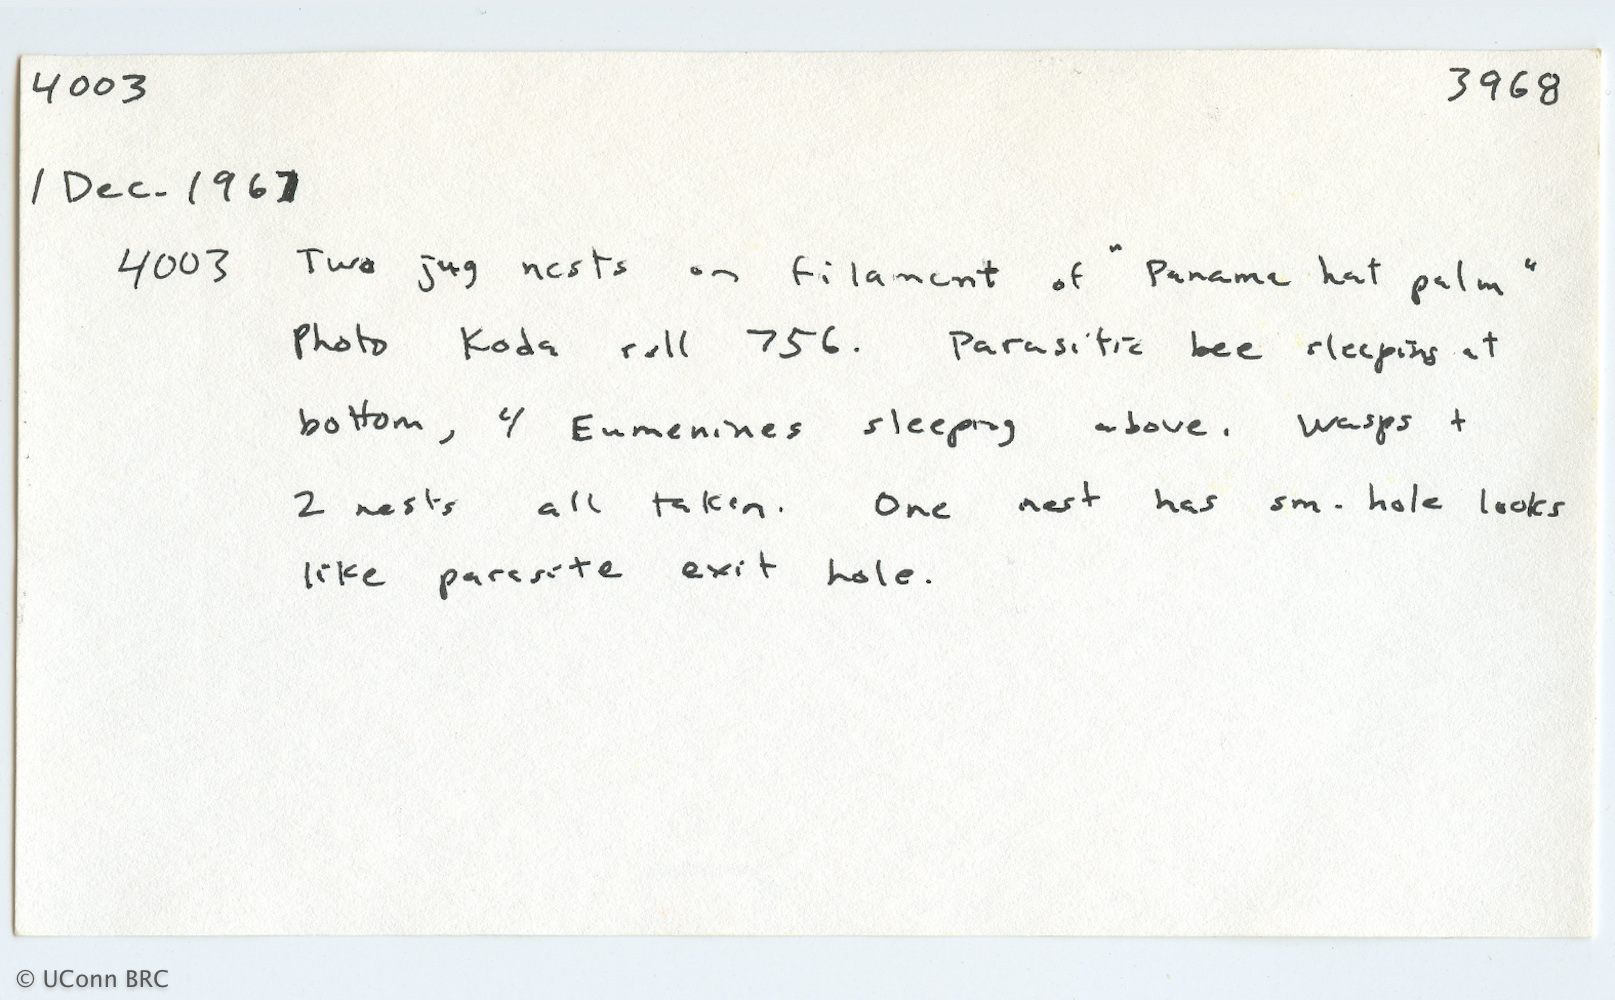 4003 3968
1 Dec. 1967
4003 Two jug nests on filament of "Panama hat palm"
Photo Koda roll 756. Parasitic bee sleeping at
bottom, 4 Eumenines sleeping above. Wasps +
2 nests all taken. One nest has sm. hole looks
like parasite exit hole.
© UConn BRC